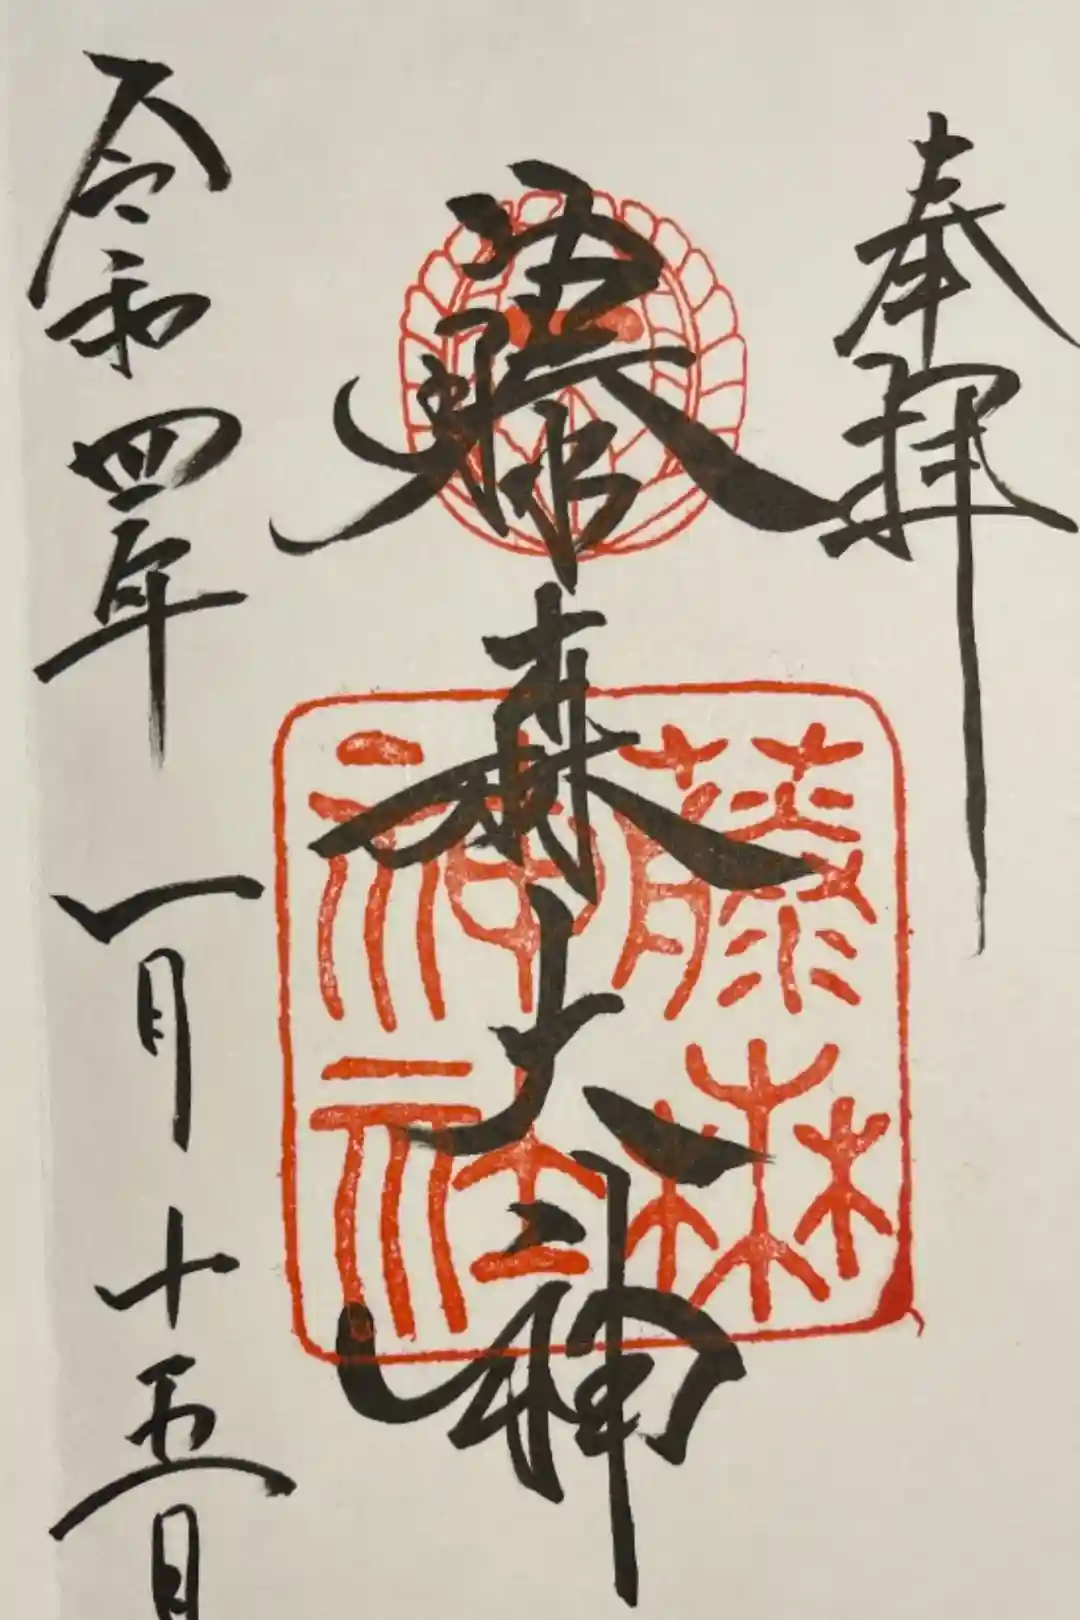 奉拝
藤森大神
藤森
神社
令和四年一月十五日